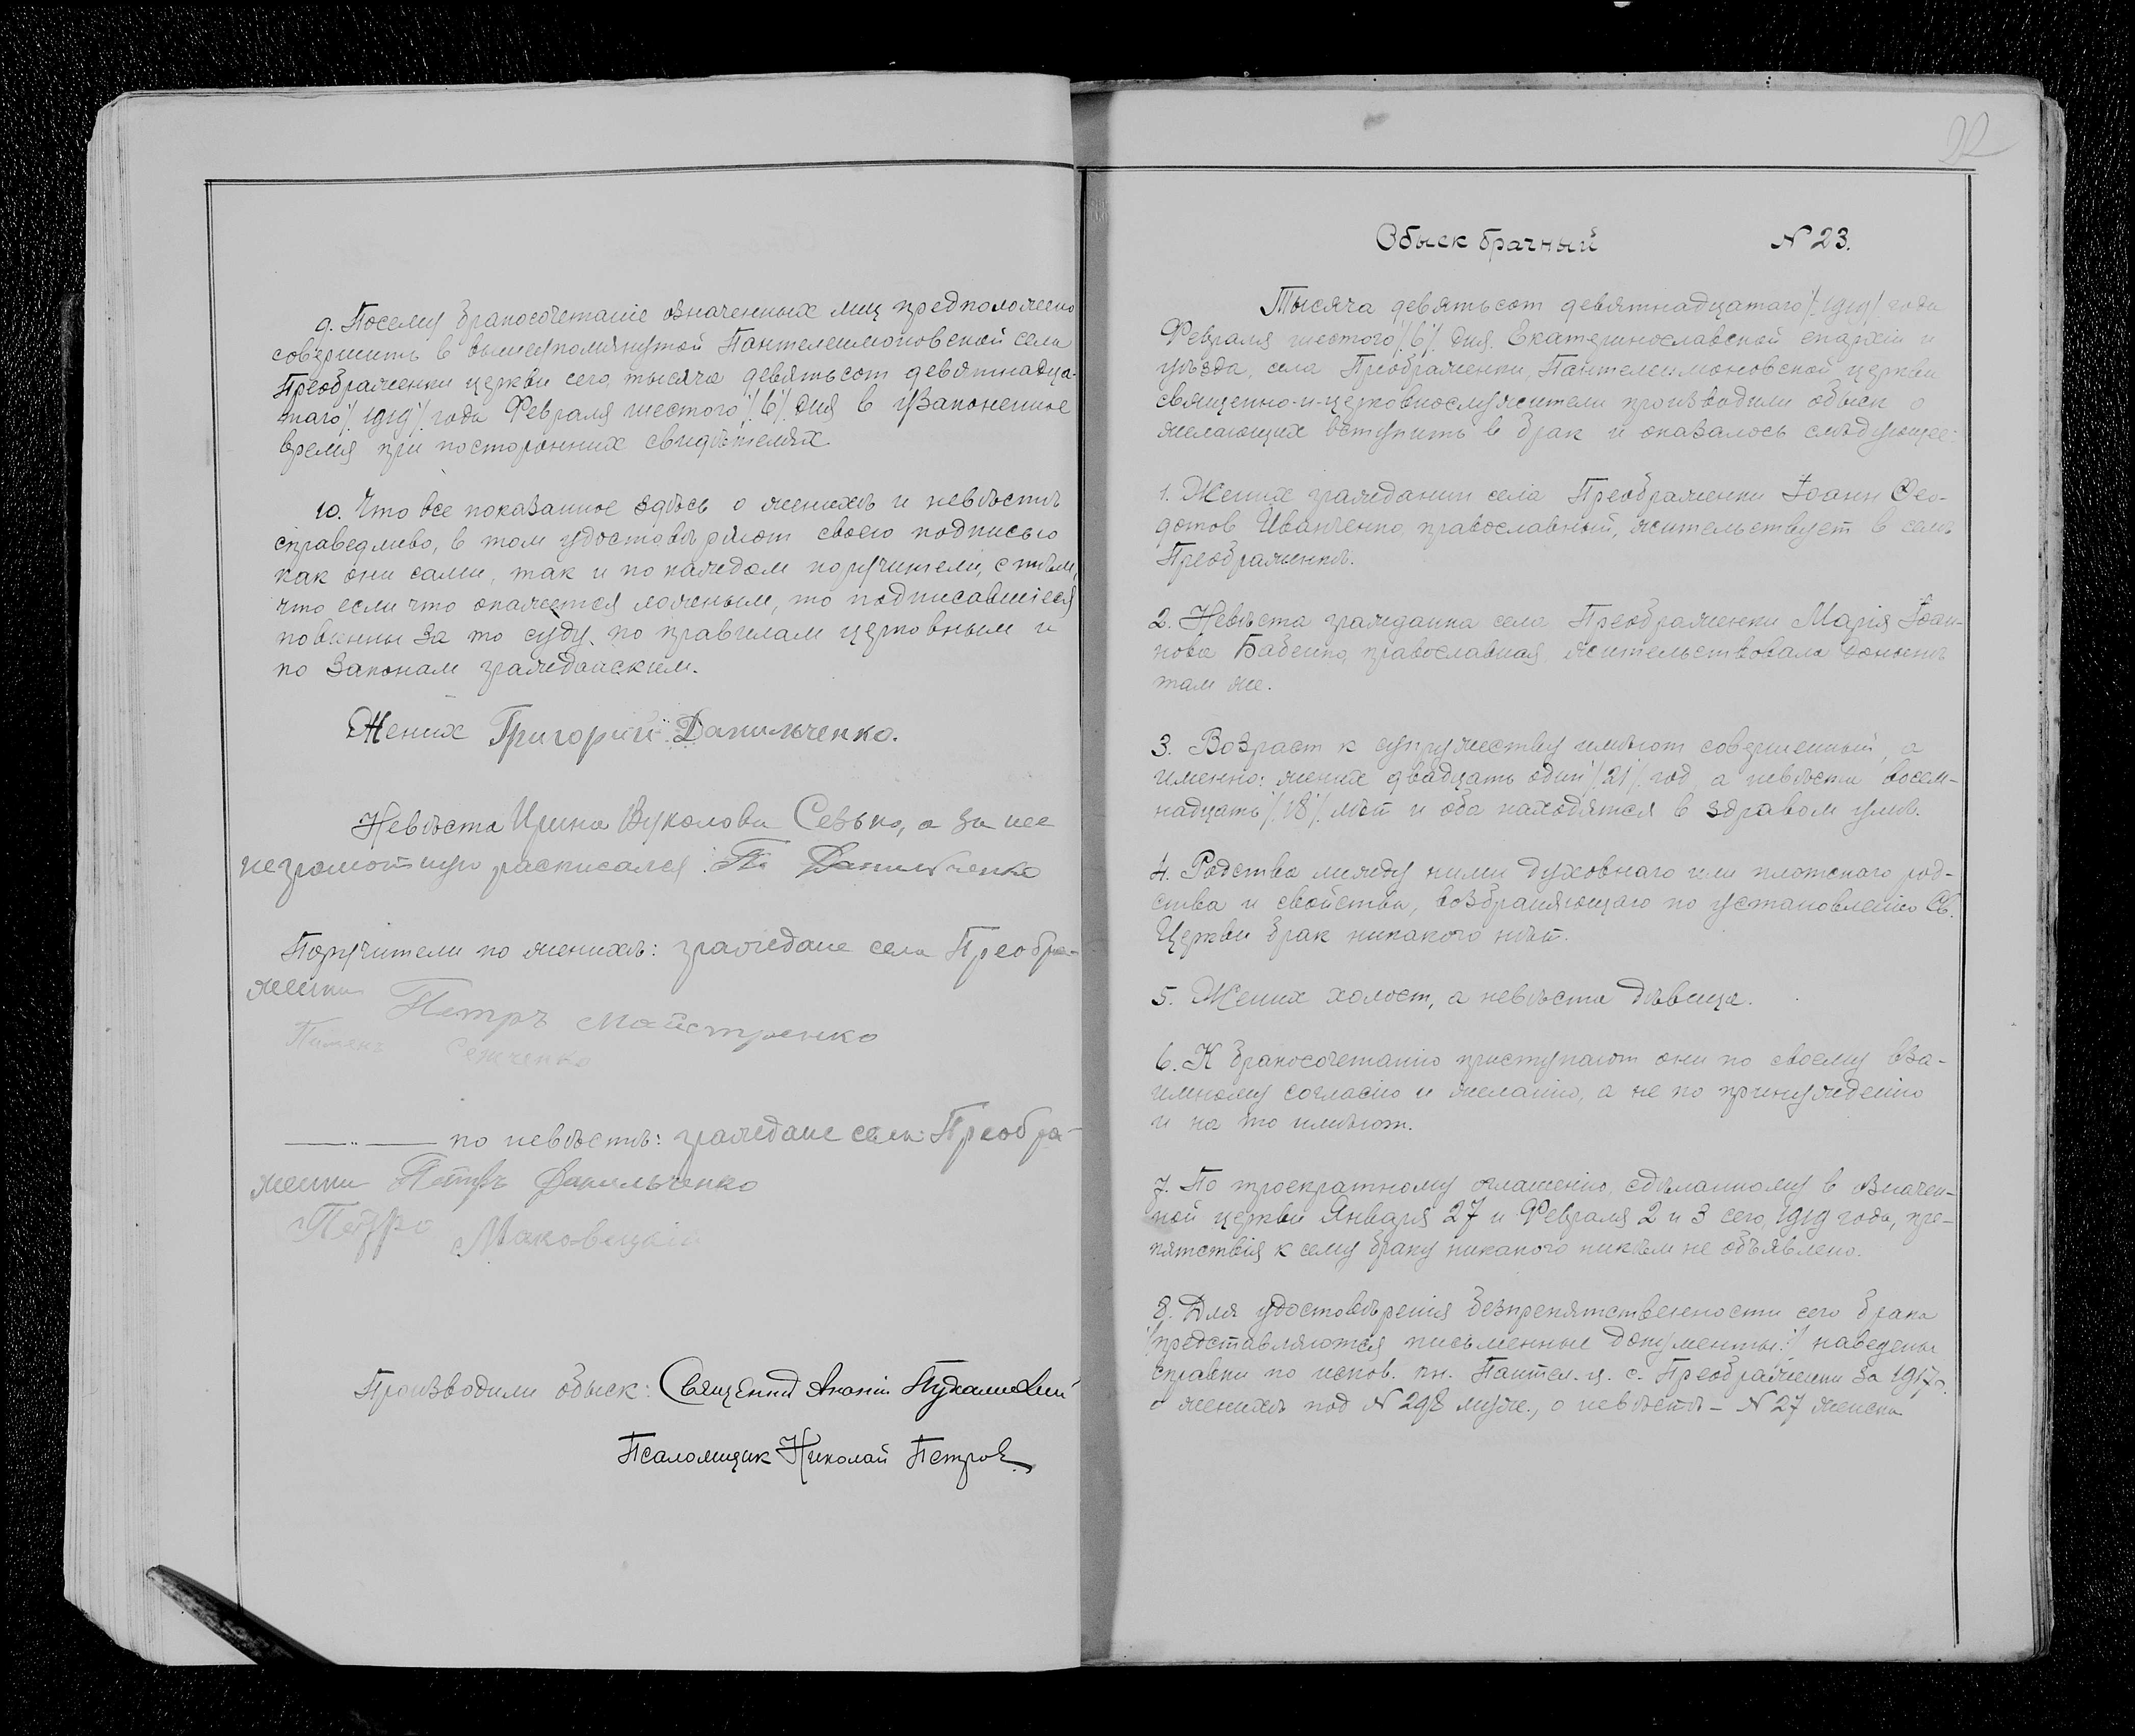 9. Посему бракосочетаніе означенных лиц предположено
совершить в вышеупомянутой Пантелеимоновской села
Преображенки церкви сего, тысяча девятьсот девятнадца-
таго /:1919:/ года Февраля шестого /:6:/ дня в узаконенное
время при посторонних свидѣтелях.
10. Что все показанное здѣсь о женихѣ и невѣстѣ
справедливо, в том удостовѣряют своею подписью
как они сами, так и по каждом поручители, с тѣм,
что если что окажется ложным, то подписавшіеся
повинны за то суду, по правилам церковным и
по законам гражданским.
Жених Григорій Данильченко.
Невѣста Ирина Вуколова Сезько, а за нее
неграмотную расписался П. Данильченко
Поручители по женихѣ: граждане села Преобра-
женки
Петръ Майстренко
Пименъ
—〃— по невѣстѣ: граждане села Преобра-
женки Петръ Данильченко
Петро Маковецкій
Производили обыск: Священник Ананій
Псаломщик Николай Петров.
22
Обыск брачный N 23.
Тысяча девятьсот девятнадцатаго /:1919:/ года
Февраля шестого /:6:/ дня. Екатеринославской епархіи и
уѣзда, села Преображенки, Пантелеимоновской церкви
священно-и-церковнослужители производили обыск о
желающих вступить в брак и оказалось слѣдующее:
1. Жених гражданин села Преображенки Іоанн Ѳео-
дотов Иванченко, православный, жительствует в селѣ
Преображенкѣ.
2. Невѣста гражданка села Преображенки Марія Іоан-
нова Бабенко, православная, жительствовала донынѣ
там же.
3. Возраст к супружеству имѣют совершенный, а
именно: жених двадцать один /:21:/ год, а невѣста восем-
надцать /:18:/ лѣт и оба находятся в здравом умѣ.
4. Родства между ними духовнаго или плотскаго род-
ства и свойства, возбраняющаго по установленію Св.
Церкви брак никакого нѣт.
5. Жених холост, а невѣста дѣвица.
6. К бракосочетанію приступают они по своему вза-
имному согласію и желанію, а не по принужденію
и на то имѣют.
7. По троекратному оглашенію, сдѣланному в означен-
ной церкви Января 27 и Февраля 2 и 3 сего, 1919 года, пре-
пятствія к сему браку никакого никѣм не объявлено.
8. Для удостовѣренія безпрепятственности сего брака
/:представляются письменные документы:/ наведены
справки по испов. кн. Пантел. ц. с. Преображенки за 1917 г.
о женихѣ под N 298 муж., о невѣстѣ - N 27 женск.